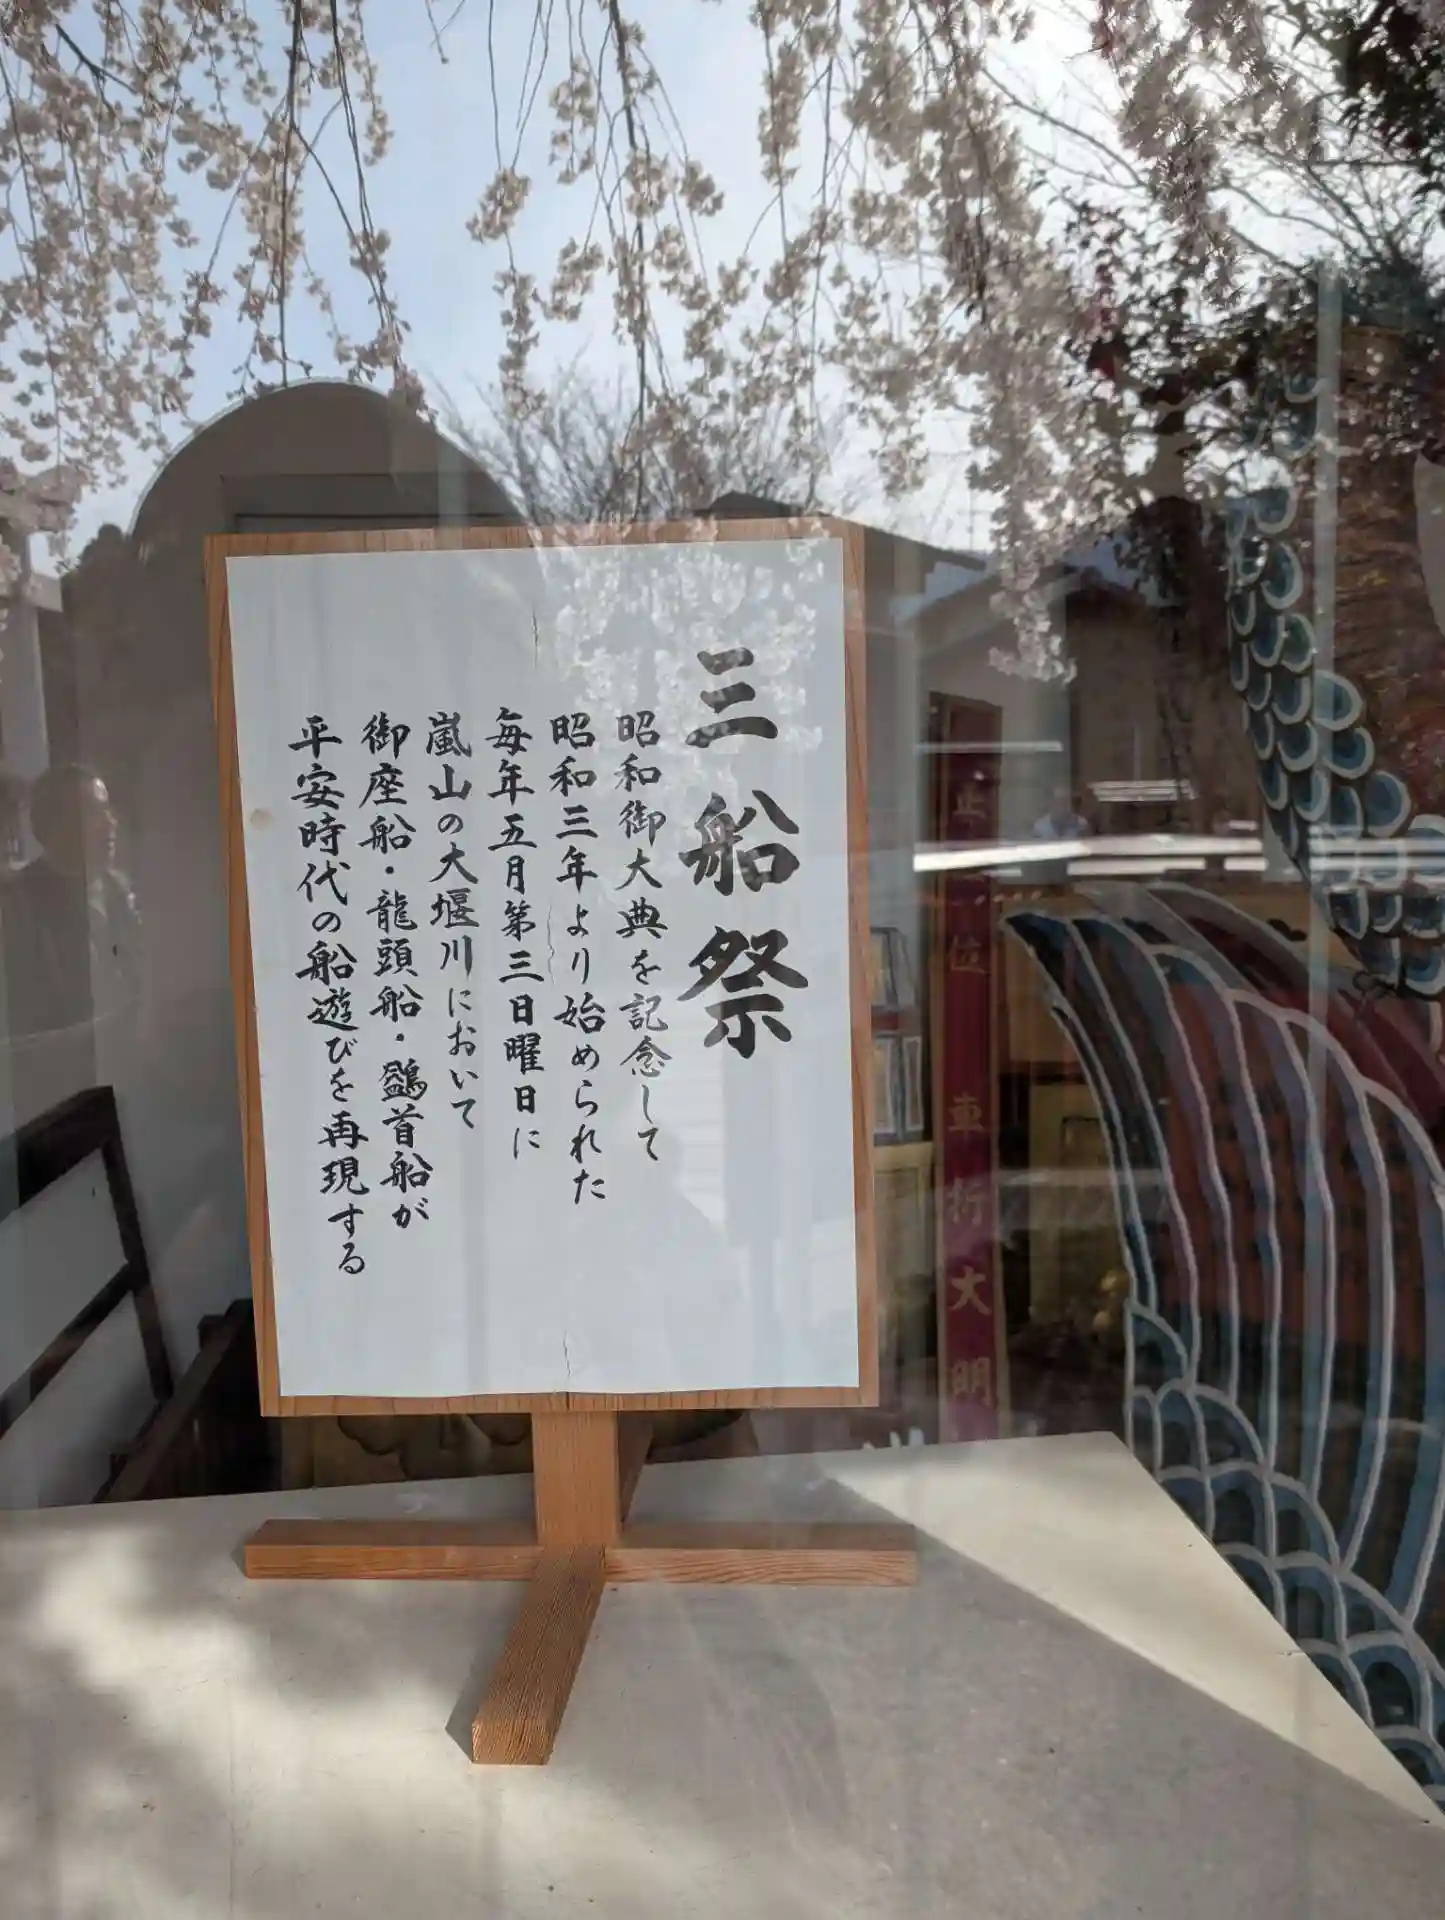 三船祭
昭和御大典を記念して
昭和三年より始められた
毎年五月第三日曜日に
嵐山の大堰川において
御座船・龍頭船・鷁首船が
平安時代の船遊びを再現する
正一位 車折大明